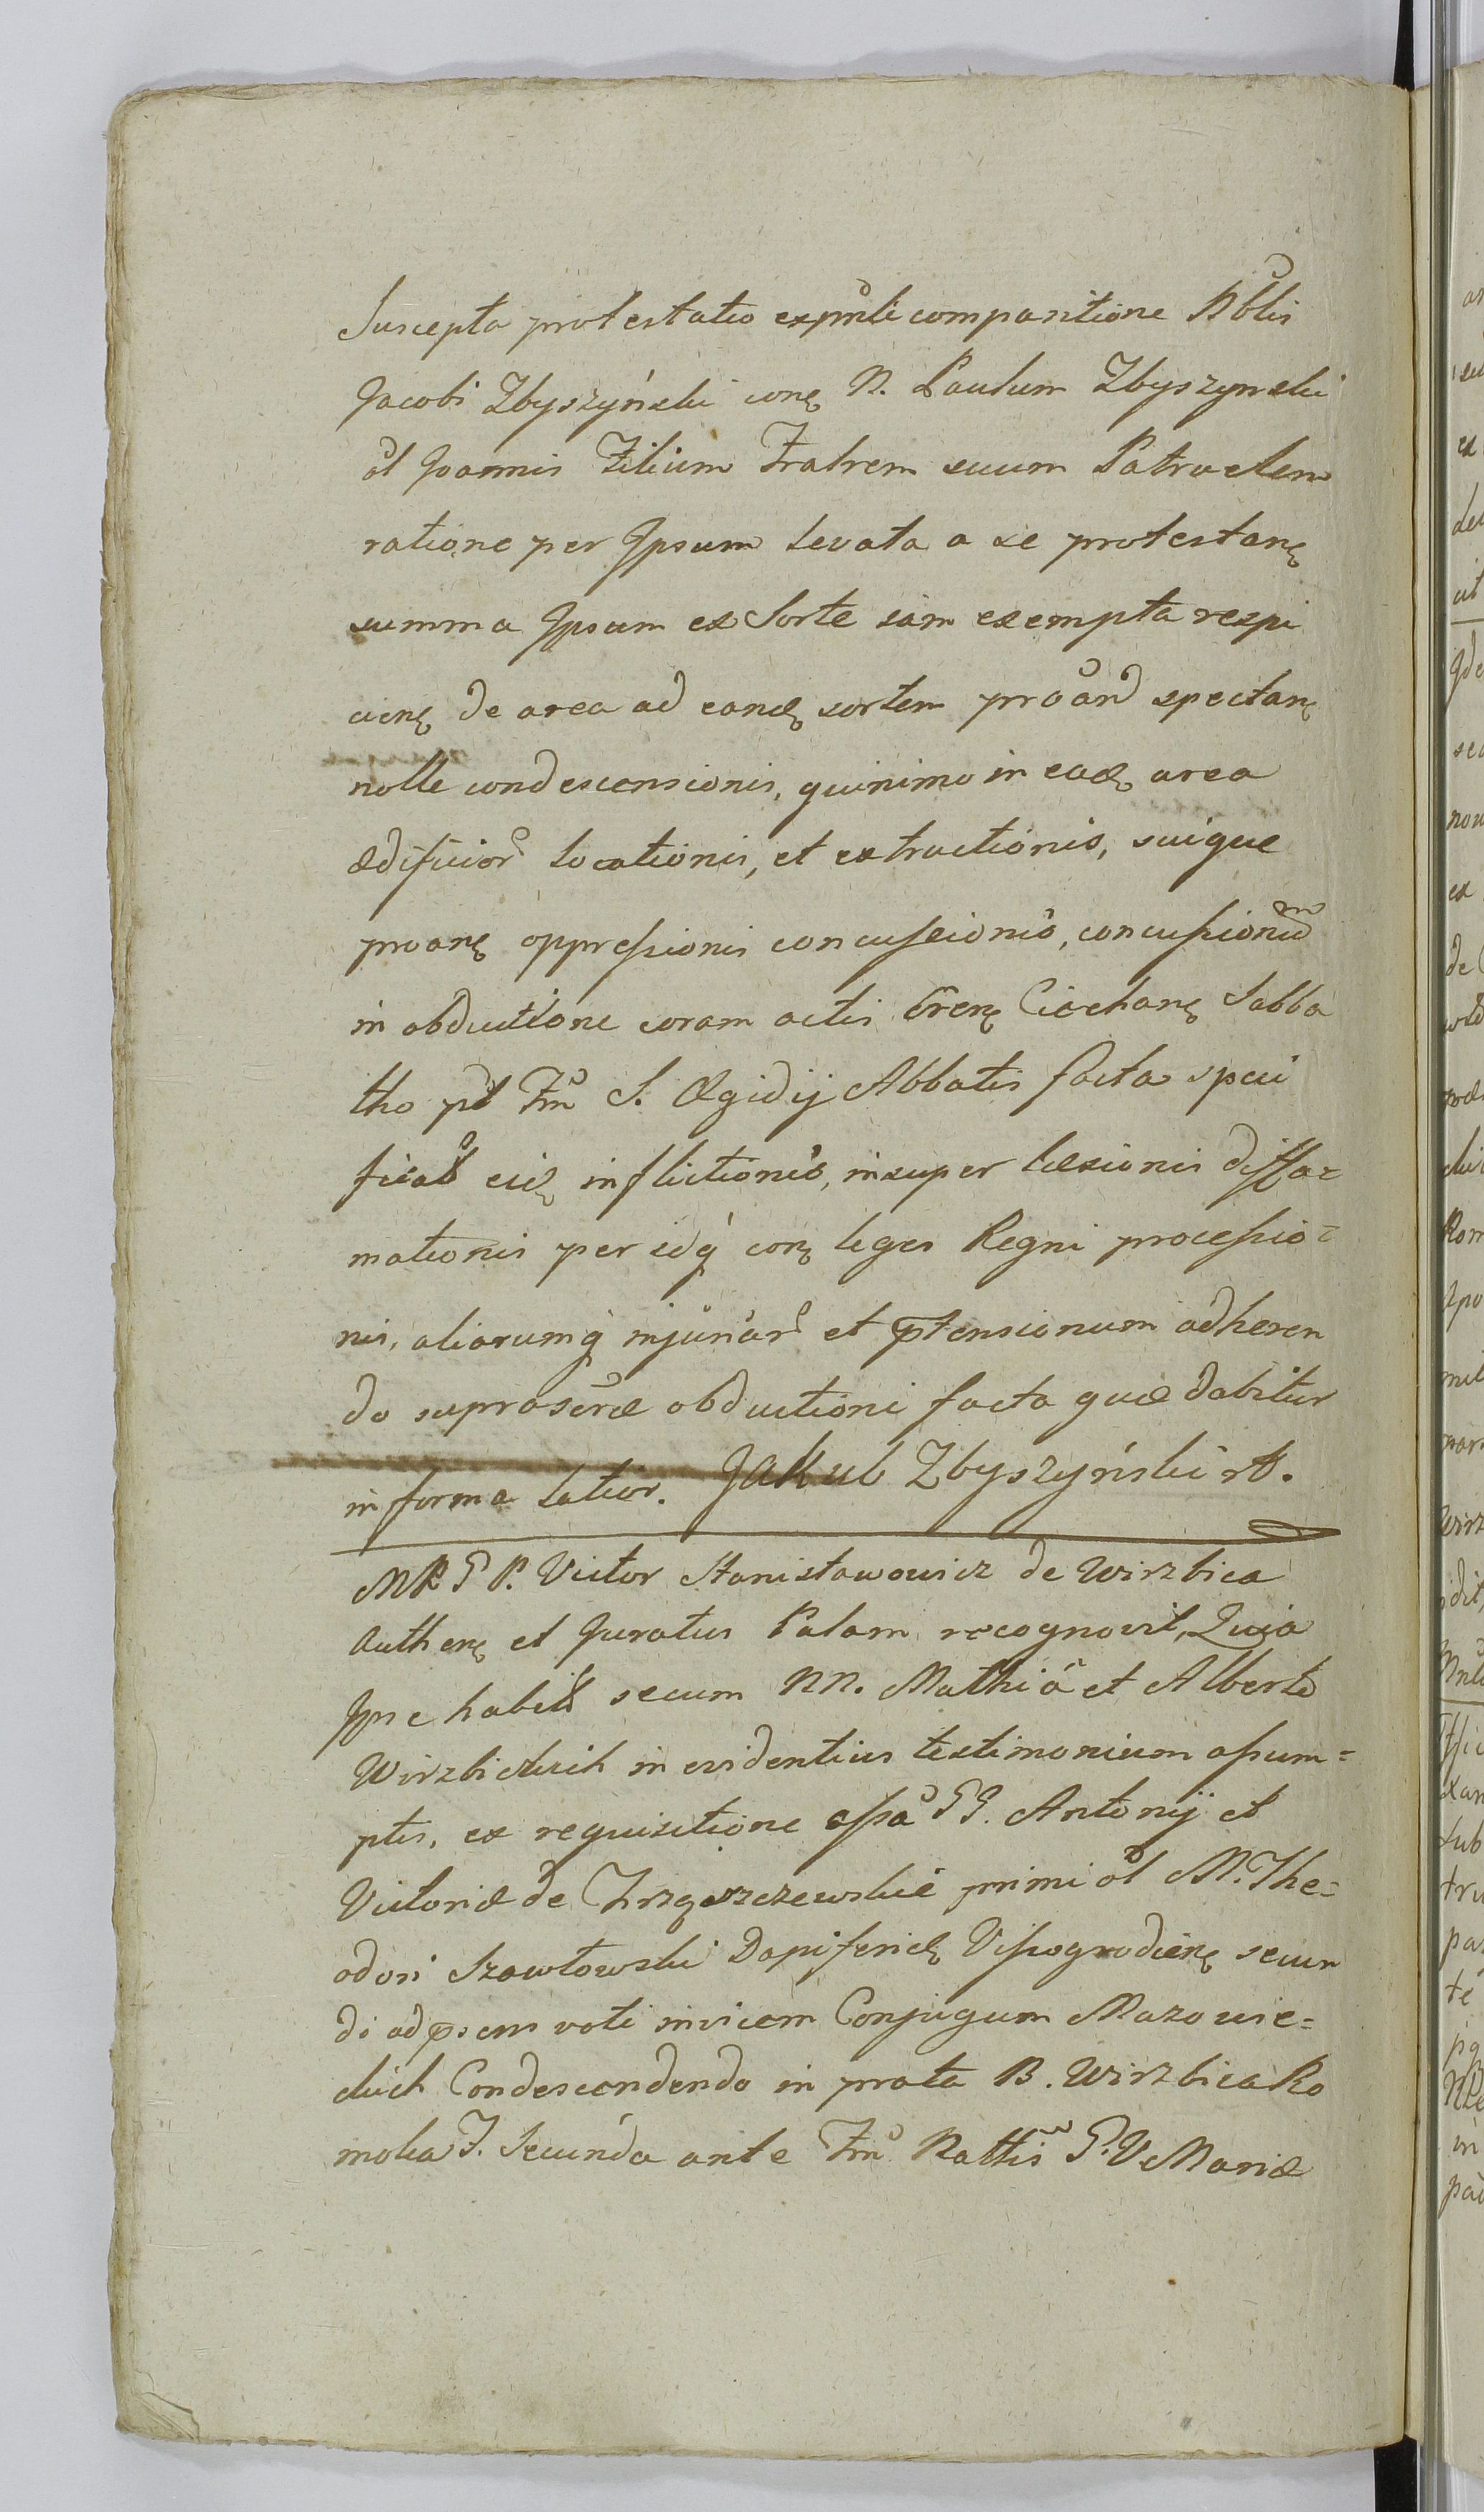 Suscepta protestatio exp̃nli comparitione Nb̃lis
Jacobi Zbyszyński conę N. Paulum Zbyszynski
ol̃ Joannis Filium Fratrem suum Patruelem
ratione per Ipsum levata a se protestanę
summa Ipsum ex Sorte sam exempta respi
cienę de area ad eandę sortem proañd spectanę
nolle condescensionis, quinimo in eadę area
ædificior̃ locationis, et extructionis, suique
proanę oppressionis concussionis, concussionũm
in obductione coram actis Cr̃enę Ciechanę Sabba
tho pt̃ Fm̃ S. Ægidij Abbatis facta speci
ficat̃ eidę inflictionis, insuper læsionis diffa=
mationis per idq́ conę leges Regni processio=
nis, aliarumq́ injuriar̃ et ptensionum adheren
do suprascr̃æ obductioni facta quæ dabitur
in forma latior. Jakub Zbyszyński A.
MRGP. Victor Stanisławowicz de Wirzbica
Authenę et Juratus Palam recognovit, Quia
Ipse habit̃ secum NN. Mathiã et Alberto
Wirzbickich in evidentius testimonium assum=
ptis, ex requisitione
GG. Antonij et
Victoriæ de
primi ol̃ M. The=
odori Szawłowski Dapiferidę Vissogrodienę secun
di ad psens voti invicem Conjugum Mazowie=
ckich Condescendendo in prata B. Wirzbica Ro
moka F. Secunda ante Fm̃ Nattis̃ B. V. Mariæ